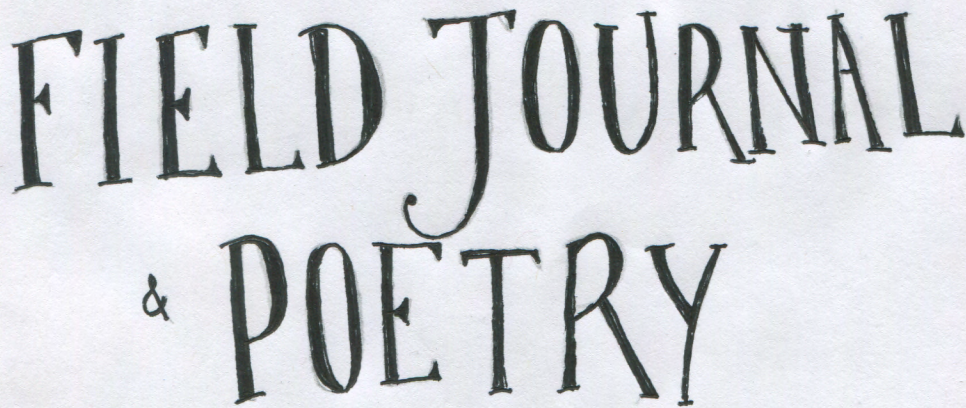 FIELD JOURNAL
& POETRY